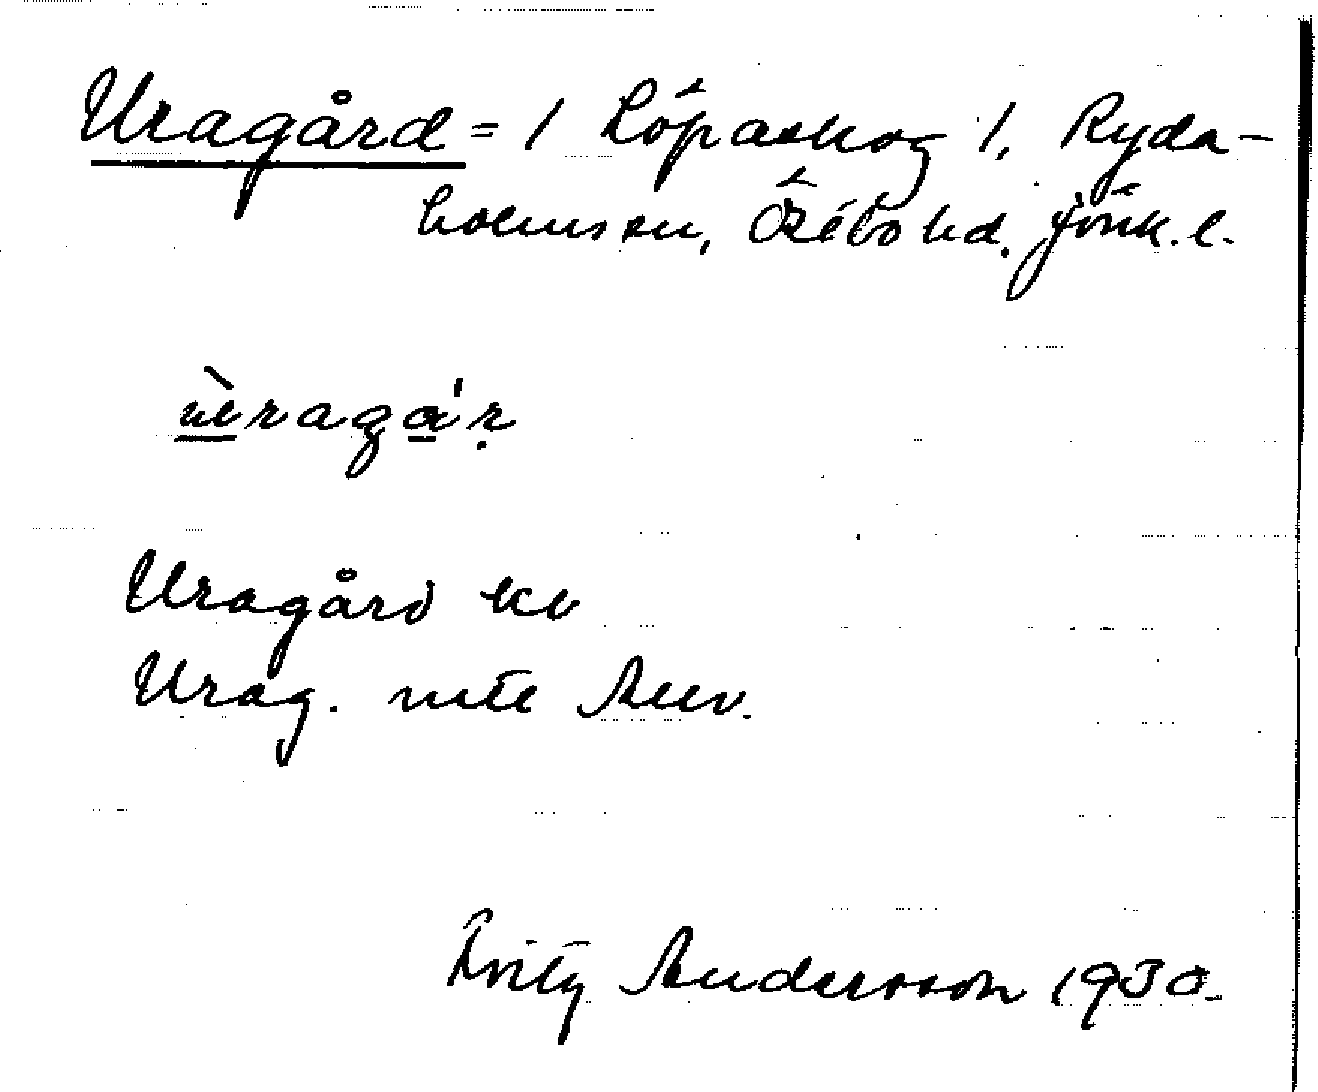 Uragård = 1 Löpaskog 1, Ryda-
holms sn, Östbo hd. Jönk. l.
ùragá'r
Uragård kb
Urag. nte Anv.
Fritz Andersson 1930.